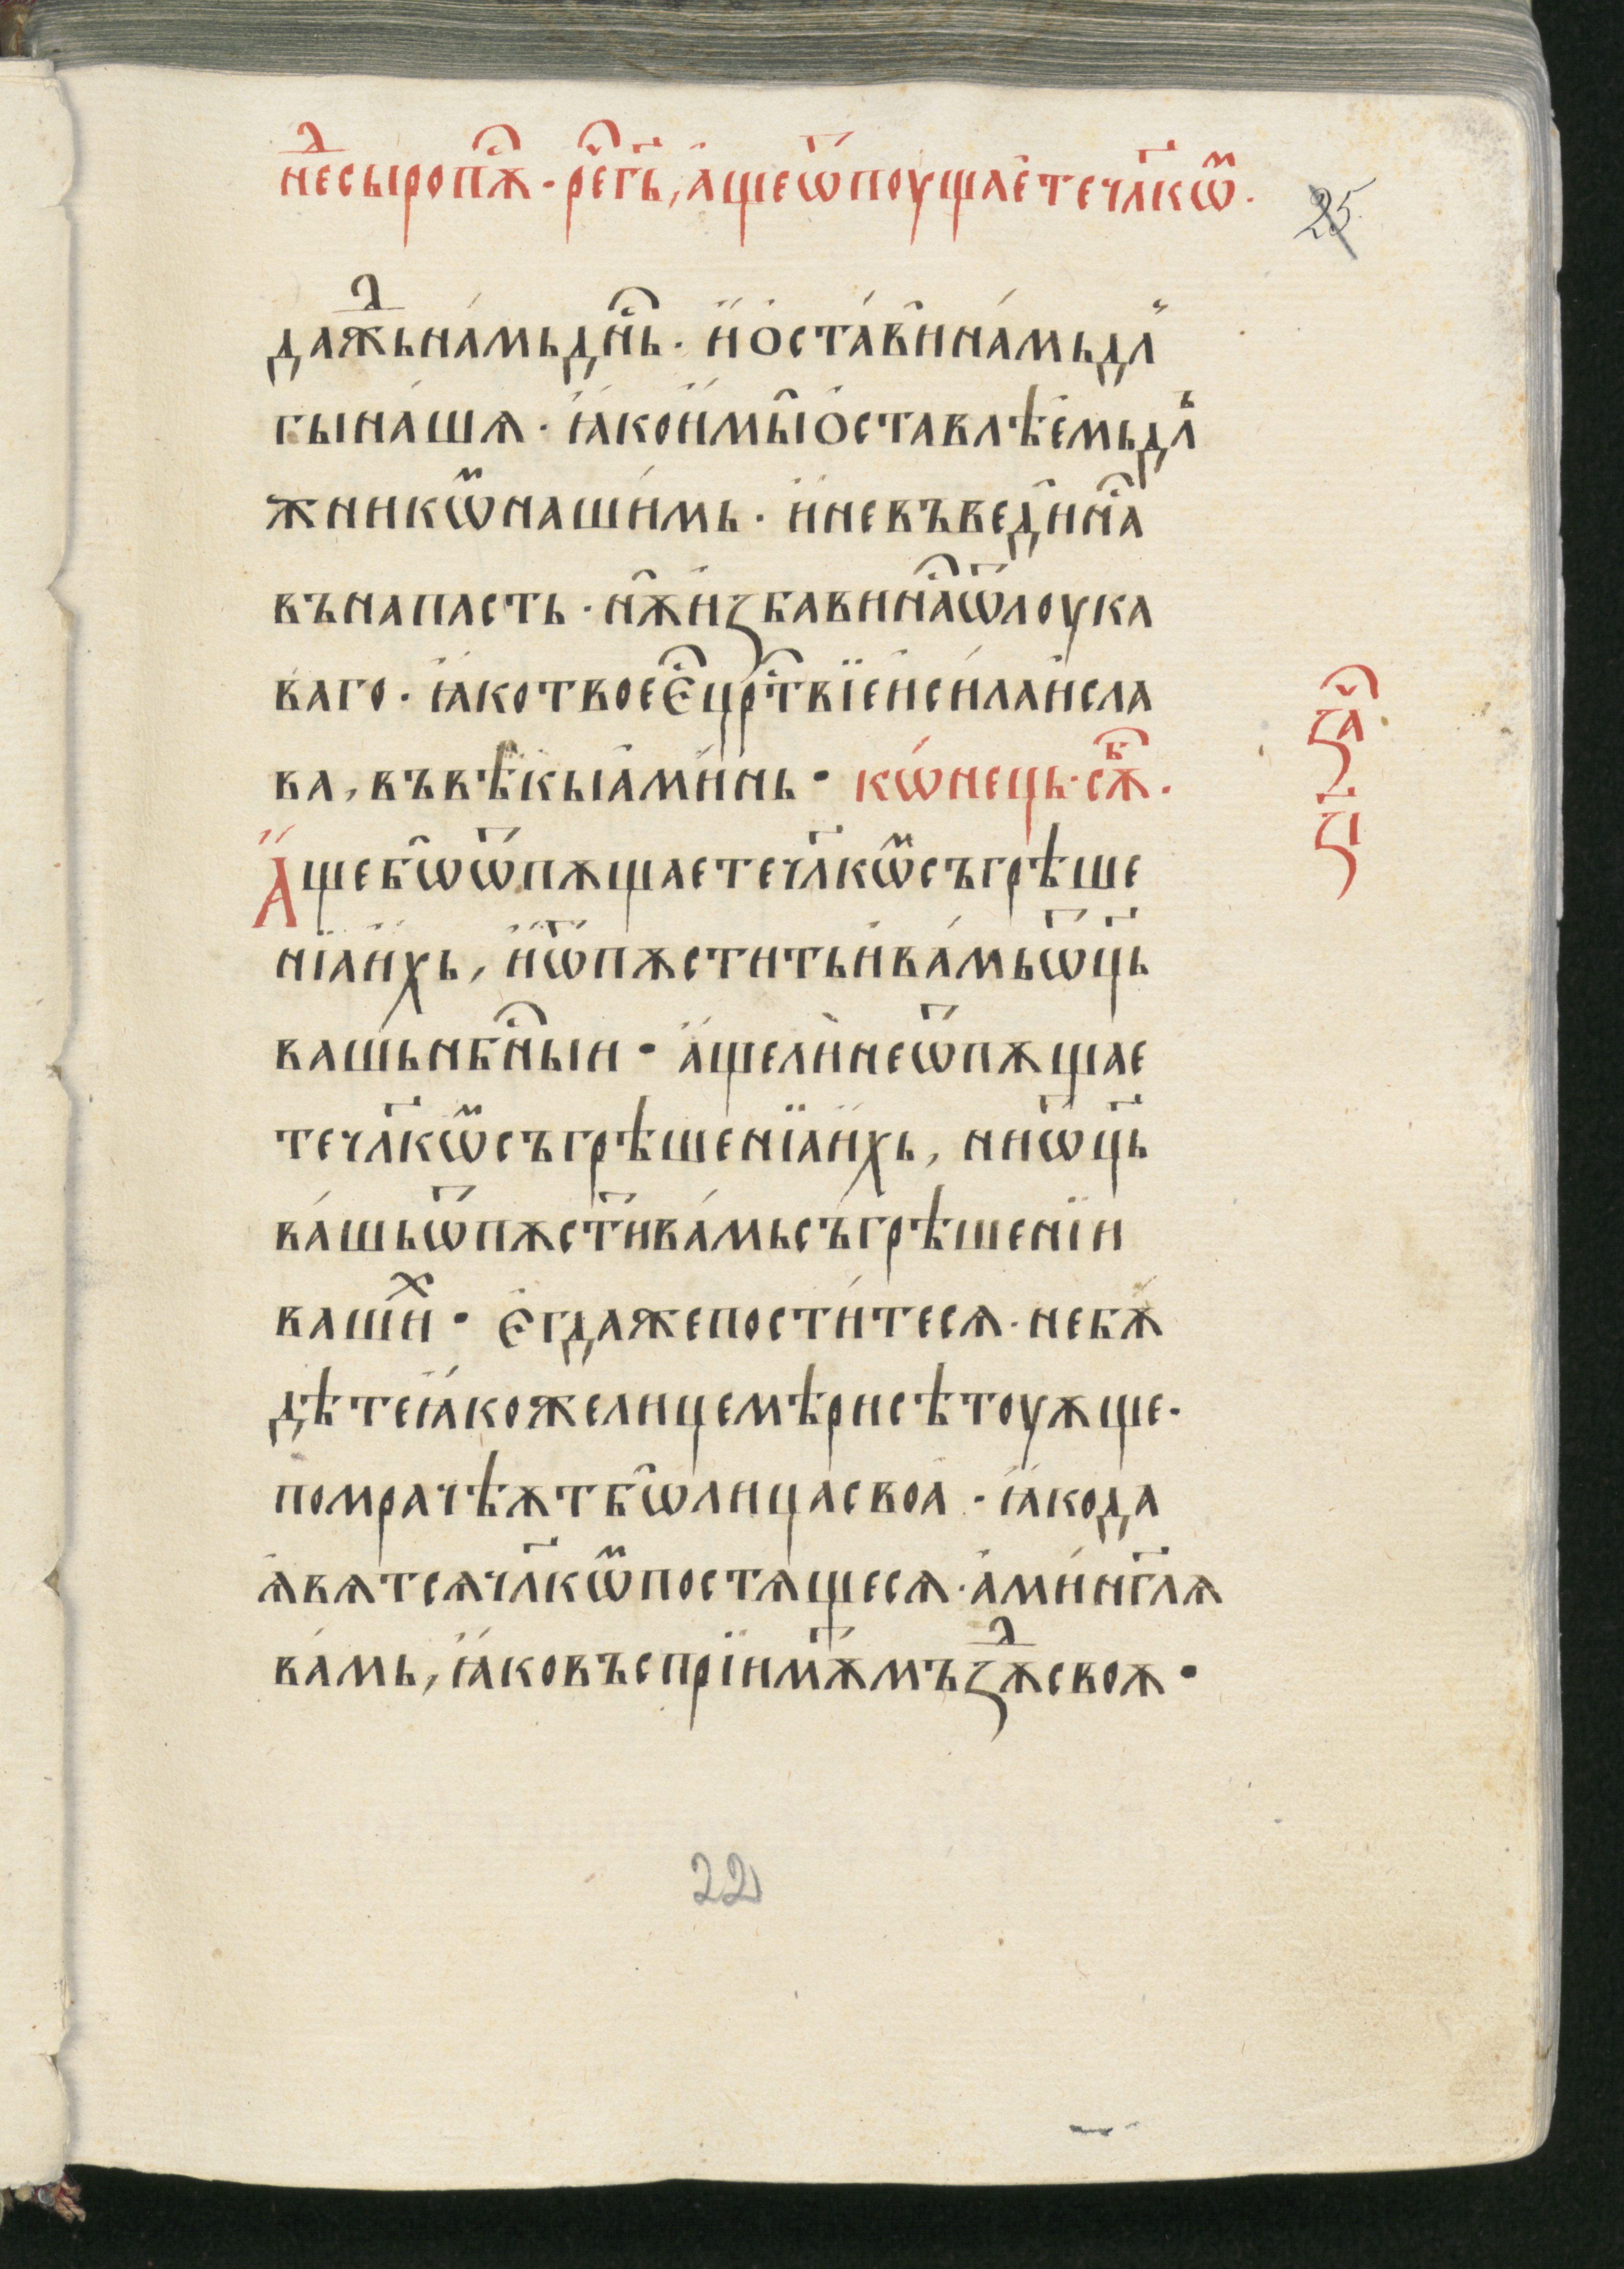 нⷣе сыропⷭ҇ѫ · рⷱ҇е г҃ь, а́ще ѿпоуща́ете чл҃кѡⷨ ·
25
дажⷣь на́мь дн҇ь · и҆ ѻ҆ста́ви на́мь дл
гы на́шѧ · ꙗ҆́ко и҆ мы̑ ѻ҆ставлѣе́мь длъ
жникѡⷨ наши́мь · и҆ не въведи̑ наⷭ҇
въ напасть · нѫ̑ и҆ꙁбави наⷭ҇ ѿ лоука
ваго · ꙗ҆́ко твое е҆ⷭ҇ црⷭ҇твїе и҆ си́ла и҆ сла
ва, въ вѣ́кы а҆ми́нь · кѡ́нець · сѫⷠ҇ ·
А҆́ще бѡ̑ ѿпѫщаете чл҃кѡⷨ съгрѣше
нїа и҆́хь, и҆ ѿпѫстить и҆ ва́мь ѡ҃ць
ва́шь нбⷭ҇ныи · а҆́ще ли̑ не ѿпѫщае
те чл҃кѡⷨ съгрѣшенїа и҆́хь, ни ѡ҃ць
ва́шь ѿпѫсти҃ ва́мь съ́грѣшенїи
ваши́ⷯ · Е҆гда же пости́тесѧ · не бѫ́
дѣте ꙗ҆́коже лицемѣри сѣтоуѫще ·
помрачѣѫт бѡ̑ лица своа̀ · ꙗ҆́ко да
ꙗ҆вѧтсѧ чл҃кѡⷨ постѧщесѧ · а҆ми́н гл҃ѧ
ва́мь, ꙗ҆́ко въсприимѫт мъꙁⷣѫ своѫ ·
ꙁаⷱ҇
ꙁ҃і
22